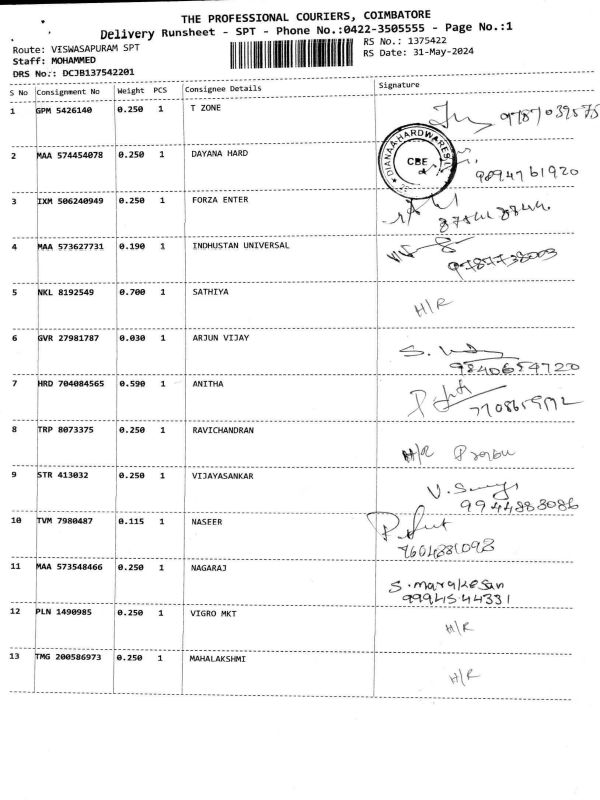 THE PROFESSIONAL COURIERS, COIMBATORE
Delivery Runsheet - SPT - Phone No.:0422-3505555 - Page No.:1
Route: VISWASAPURAM SPT
RS No.: 1375422
Staff: MOHAMMED
RS Date: 31-May-2024
DRS No.: DCJB137542201
S No Consignment No Weight PCS Consignee Details Signature
1 GPM 5426140 0.250 1 T ZONE 9787039575
DIANAA HARDWARES
CBE
2 MAA 574454078 0.250 1 DAYANA HARD 9894761920
3 IXM 506240949 0.250 1 FORZA ENTER
4 MAA 573627731 0.190 1 INDHUSTAN UNIVERSAL 9787738003
5 NKL 8192549 0.700 1 SATHIYA H/R
6 GVR 27981787 0.030 1 ARJUN VIJAY S.
9840654720
7 HRD 704084565 0.590 1 ANITHA
8 TRP 8073375 0.250 1 RAVICHANDRAN H/R Prabu
9 STR 413032 0.250 1 VIJAYASANKAR V.
9944883086
10 TVM 7980487 0.115 1 NASEER
11 MAA 573548466 0.250 1 NAGARAJ S.marakesan
9994544331
12 PLN 1490985 0.250 1 VIGRO MKT H/R
13 TMG 200586973 0.250 1 MAHALAKSHMI H/R